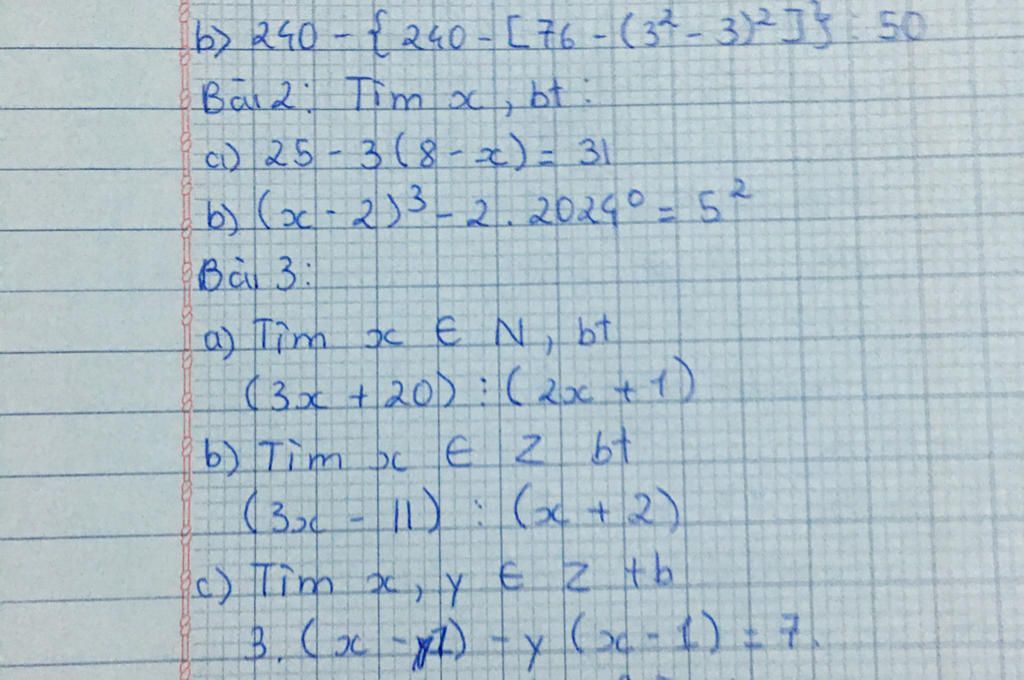 b) 240 - { 240 - [ 76 - (3² - 3)² ] } : 50
Bài 2: Tìm x, bt:
a) 25 - 3 (8 - x) = 31
b) (x - 2)³ - 2 . 2024⁰ = 5²
Bài 3:
a) Tìm x ∈ N, bt
(3x + 20) ⋮ (2x + 1)
b) Tìm x ∈ Z bt
(3x - 11) ⋮ (x + 2)
c) Tìm x, y ∈ Z tb
3. (x - 1) - y (x - 1) = 7.